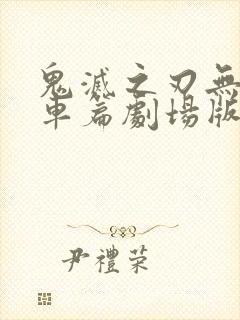 鬼滅之刃無
車篇劇場版
尹禮荣